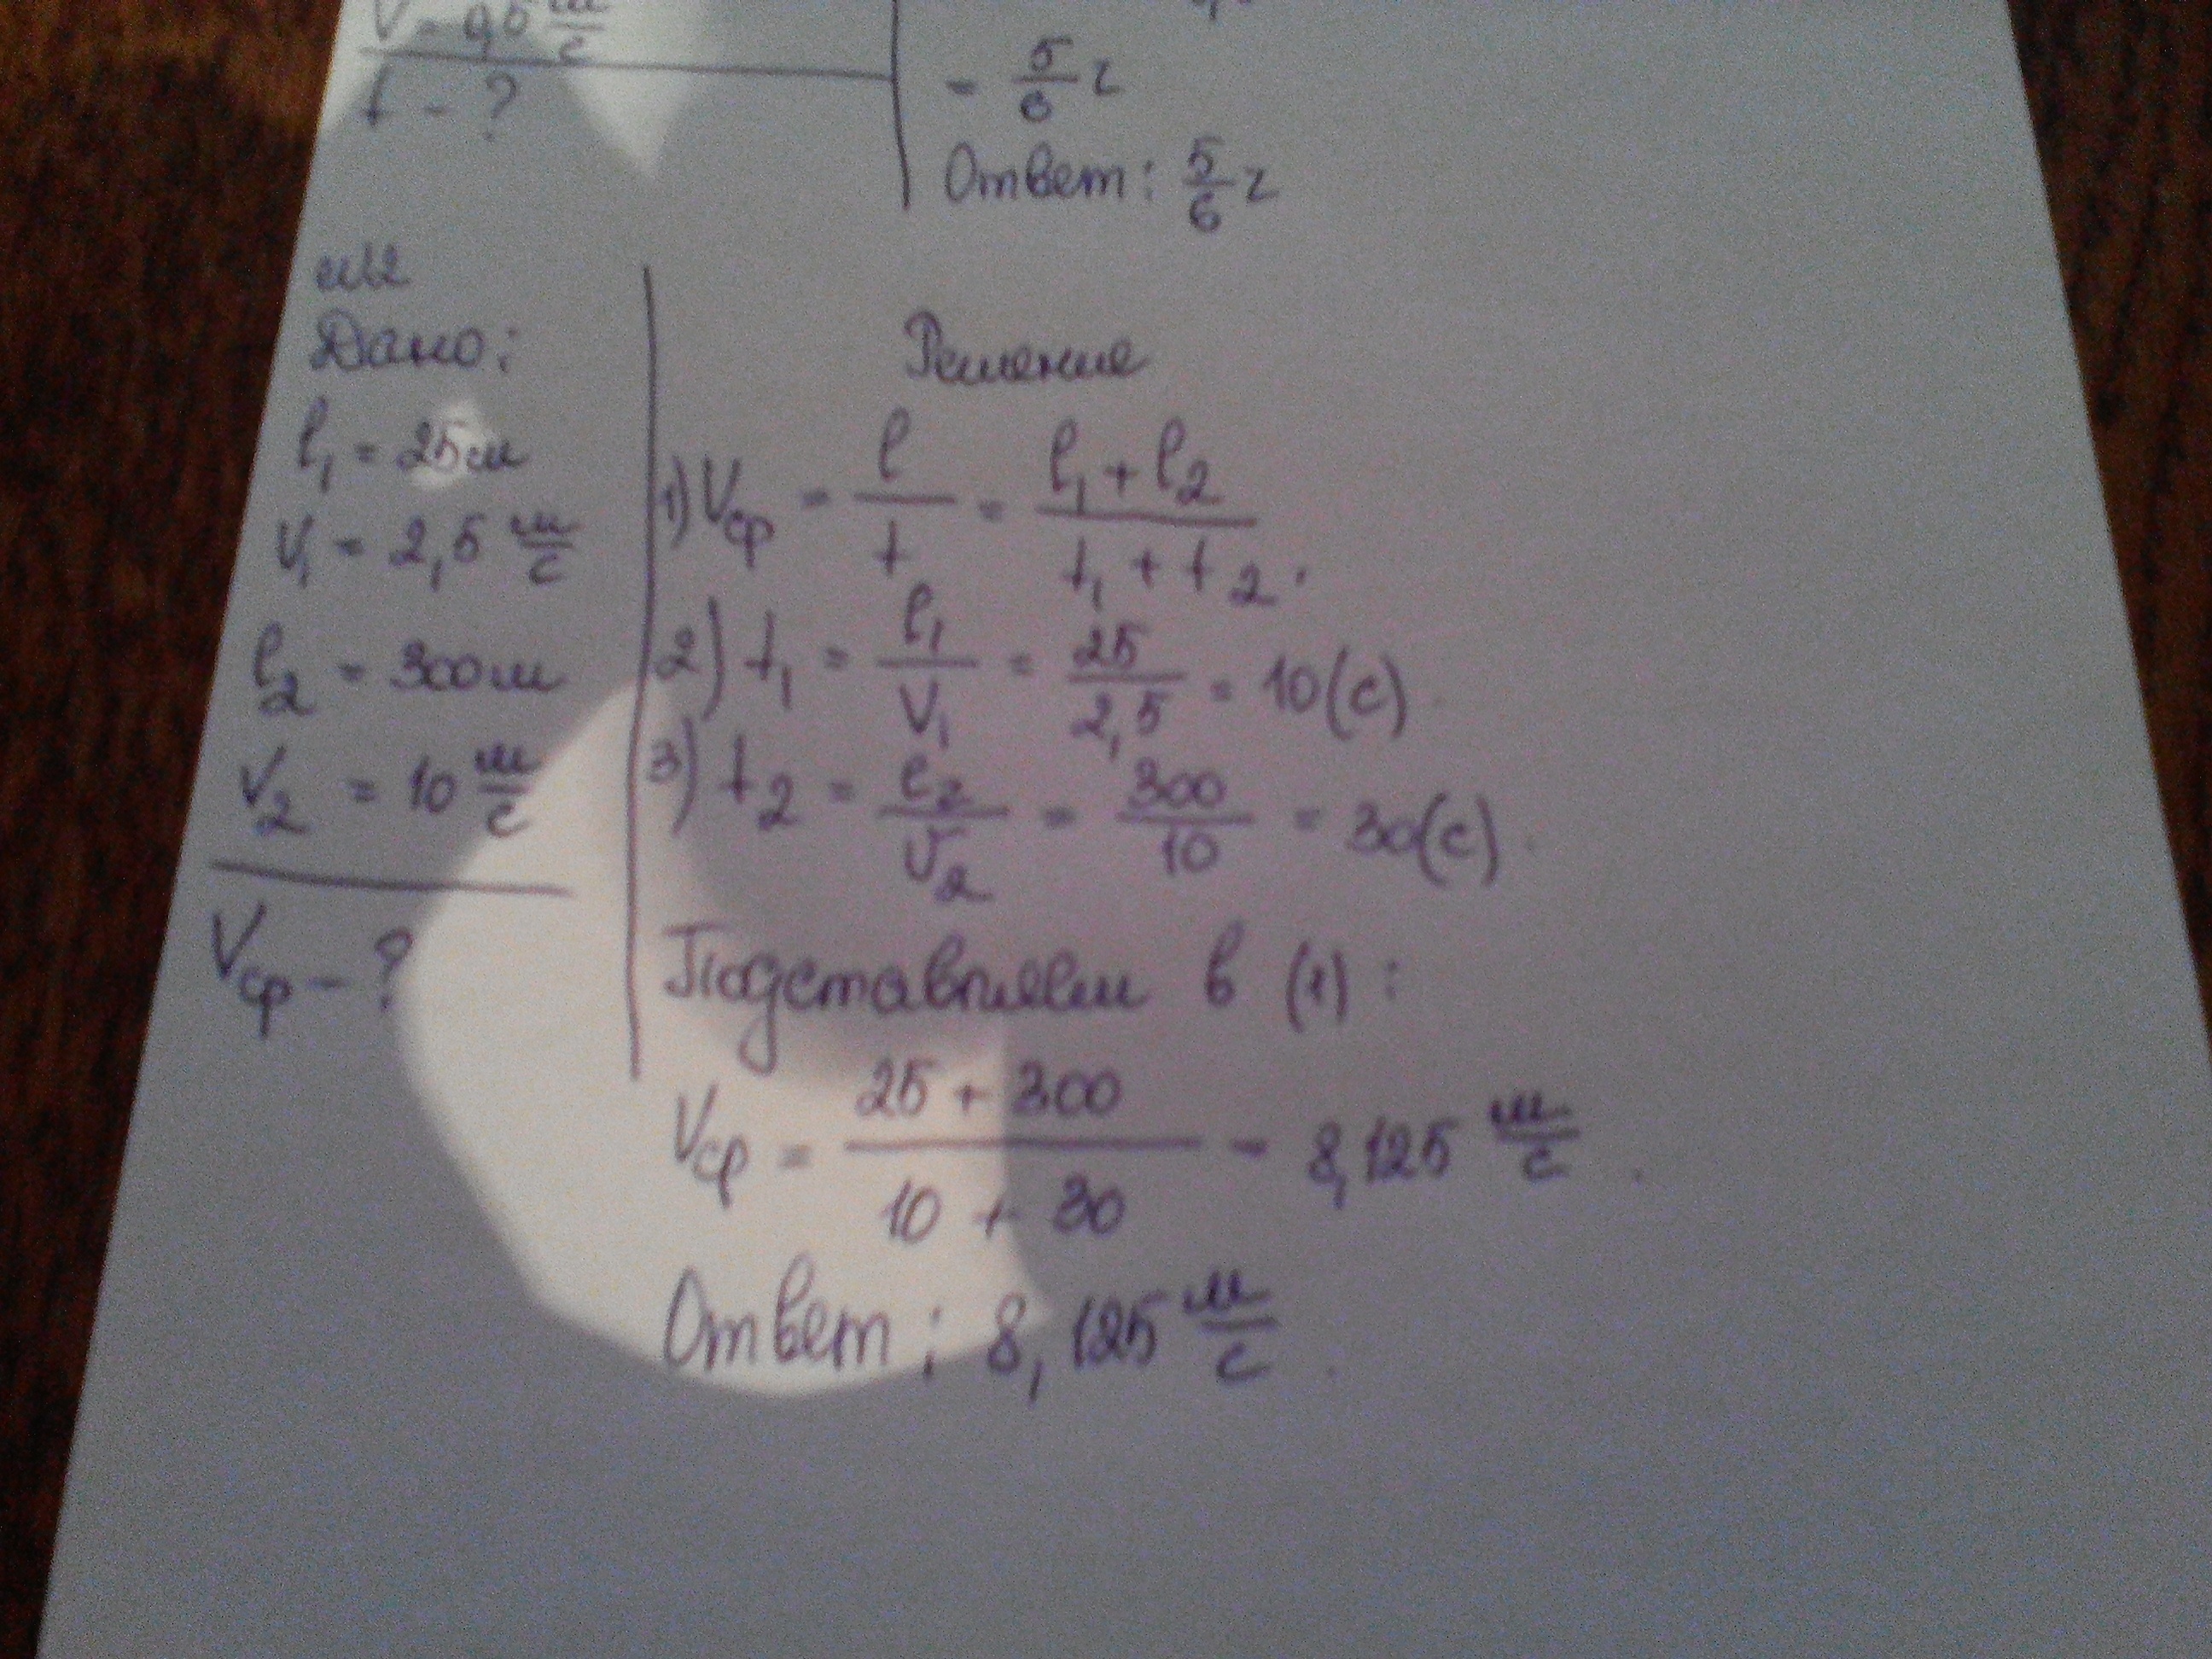 t - ?
= 5/6 г
Ответ: 5/6 г
№2
Дано:
l₁ = 25м
V₁ = 2,5 м/с
l₂ = 300м
V₂ = 10 м/с
Vср - ?
Решение
1) Vср = l/t = (l₁ + l₂)/(t₁ + t₂).
2) t₁ = l₁/V₁ = 25/2,5 = 10(с).
3) t₂ = l₂/V₂ = 300/10 = 30(с).
Подставляем в (1):
Vср = (25 + 300)/(10 + 30) = 8,125 м/с.
Ответ: 8,125 м/с.